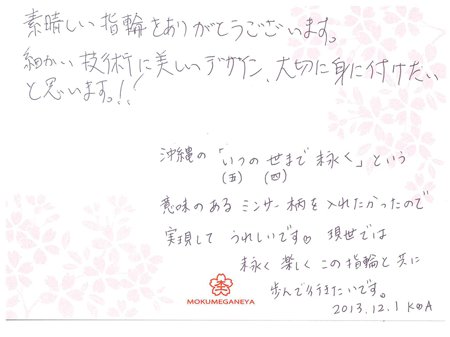 素晴しい指輪をありがとうございます。
細かい技術に美しいデザイン、大切に身に付けたい
と思います。!!
沖縄の「いつの世まで末永く」という
(五) (四)
意味のある ミンサー柄を入れたかったので
実現して うれしいです。 現世では
末永く 楽しく この指輪と共に
歩んで行きたいです。
2013.12.1 K&A
MOKUMEGANEYA